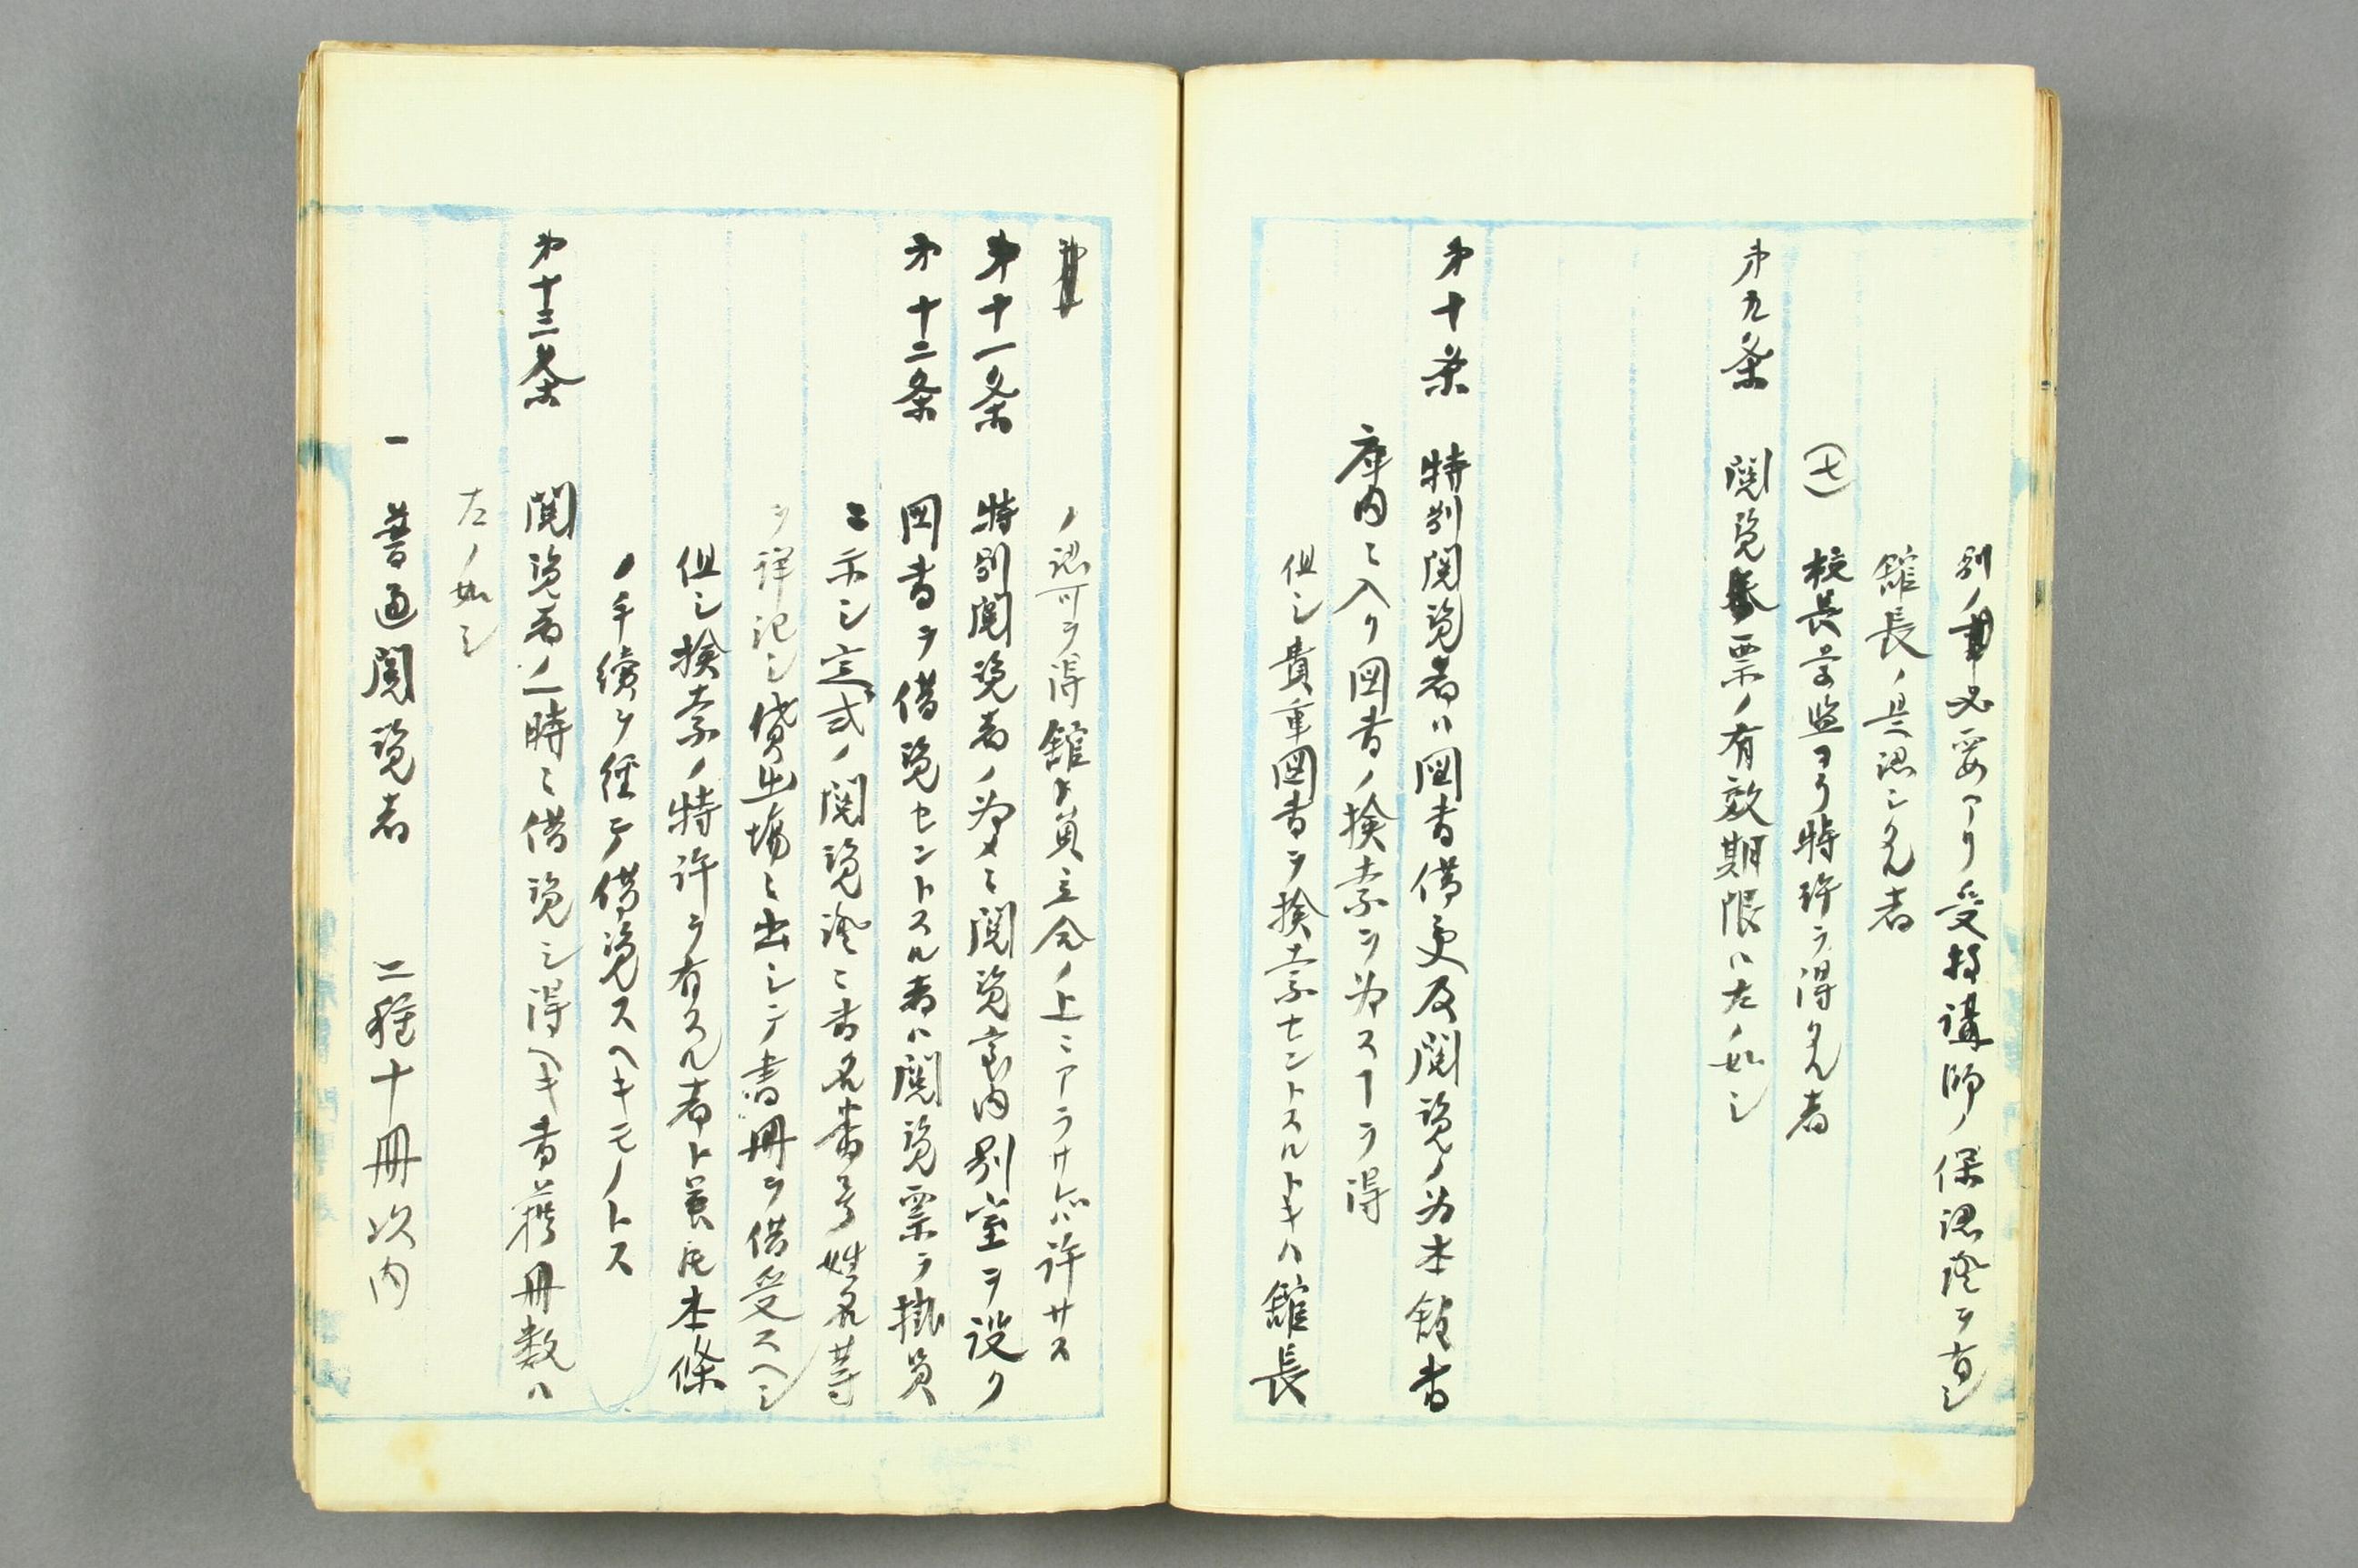 別ノ必要アリ受持講師ノ保認證ヲ有シ
館長ノ是認シタル者
(七) 校長学監ヨリ特許ヲ得タル者
第九条 閲覧票ノ有效期限ハ左ノ如シ
第十条 特別閲覧者ハ図書借受及閲覧ノ為本館書
庫内ニ入リ図書ノ検索ヲ為スヿヲ得
但シ貴重図書ヲ検索セントスルトキハ館長
ノ認可ヲ得館員立会ノ上ニアラサレハ許サス
第十一条 特別閲覧者ノ為メニ閲覧室内別室ヲ設ク
第十二条 図書ヲ借覧セントスル者ハ閲覧票ヲ掛員
ニ示シ定式ノ閲覧證ニ書名番号姓名等
ヲ詳記シ貸出場ニ出シテ書冊ヲ借受スヘシ
但シ検索ノ特許ヲ有スル者ト雖𪜈本條
ノ手續ヲ経テ借覧スヘキモノトス
第十三条 閲覧者ノ一時ニ借覧シ得ヘキ書籍冊数ハ
左ノ如シ
一 普通閲覧者 二種十冊以内